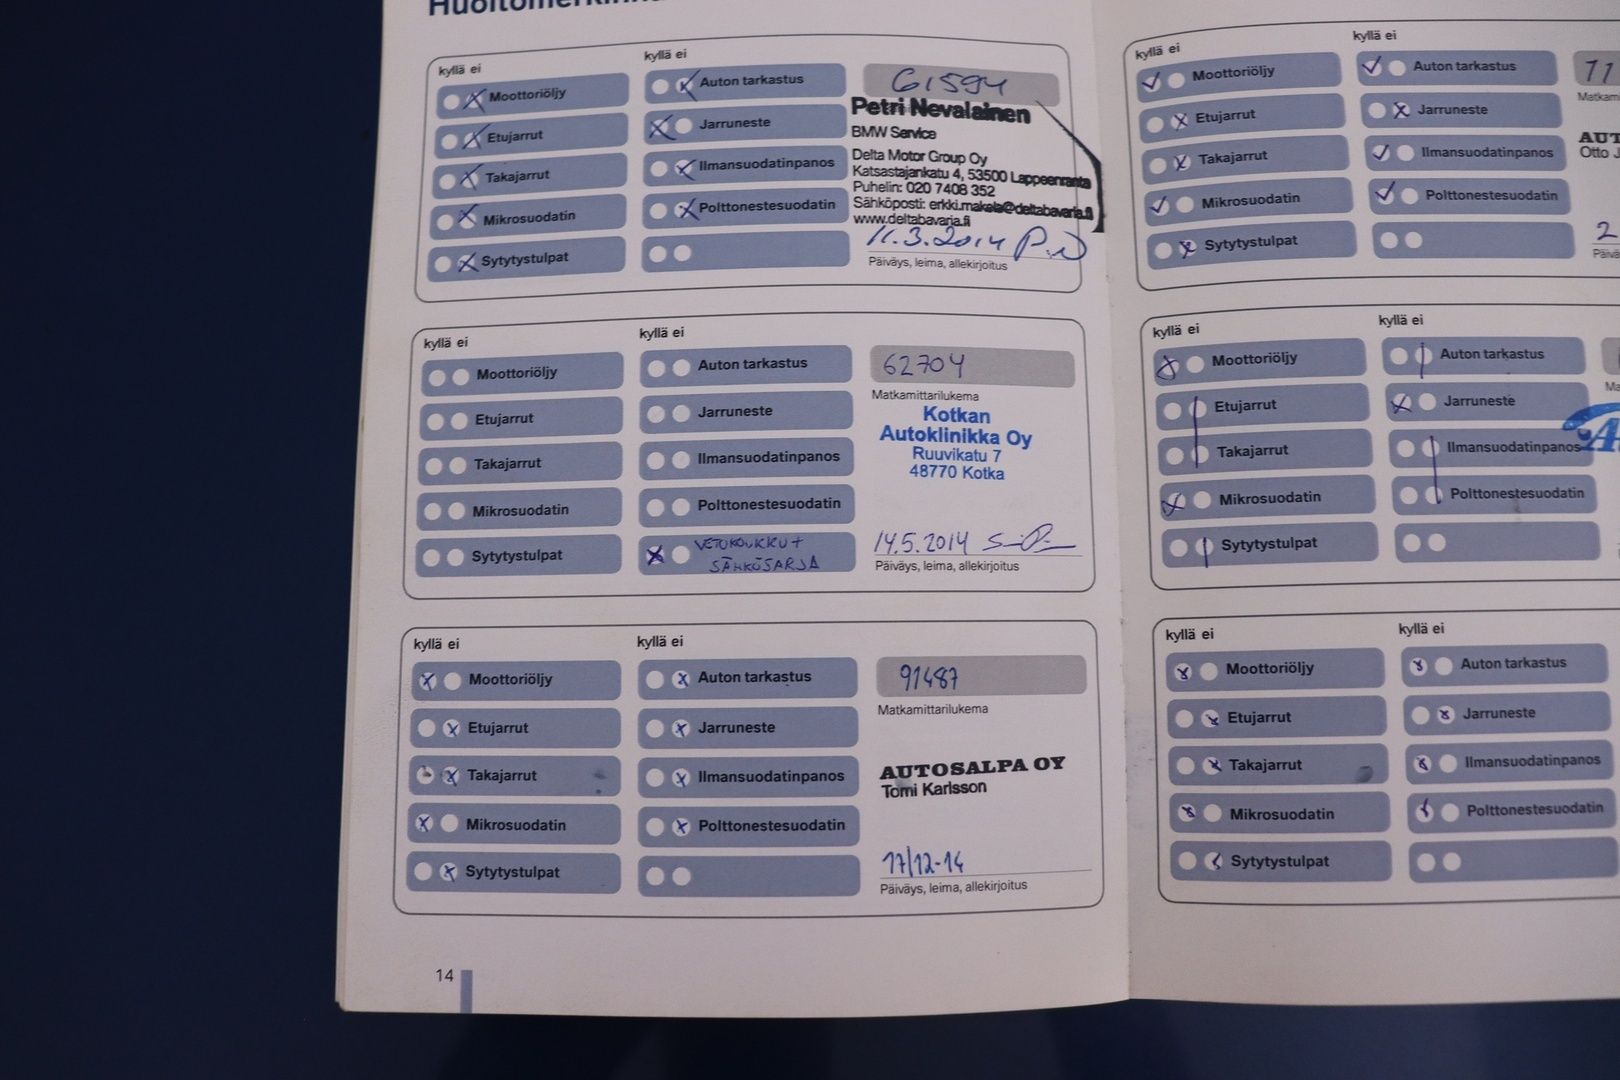 kyllä ei
Moottoriöljy
Etujarrut
Takajarrut
Mikrosuodatin
Sytytystulpat
kyllä ei
Auton tarkastus
Jarruneste
Ilmansuodatinpanos
Polttonestesuodatin
61594
Petri Nevalainen
BMW Service
Delta Motor Group Oy
Katsastajankatu 4, 53500 Lappeenranta
Puhelin: 020 7408 352
Sähköposti: erkki.makela@deltabavaria.fi
www.deltabavaria.fi
11.3.2014
Päiväys, leima, allekirjoitus
kyllä ei
Moottoriöljy
Etujarrut
Takajarrut
Mikrosuodatin
Sytytystulpat
kyllä ei
Auton tarkastus
Jarruneste
Ilmansuodatinpanos
Polttonestesuodatin
VETOKOUKKU +
SÄHKÖSARJA
62704
Matkamittarilukema
Kotkan
Autoklinikka Oy
Ruuvikatu 7
48770 Kotka
14.5.2014
Päiväys, leima, allekirjoitus
kyllä ei
Moottoriöljy
Etujarrut
Takajarrut
Mikrosuodatin
Sytytystulpat
kyllä ei
Auton tarkastus
Jarruneste
Ilmansuodatinpanos
Polttonestesuodatin
91487
Matkamittarilukema
AUTOSALPA OY
Tomi Karlsson
17/12-14
Päiväys, leima, allekirjoitus
14
kyllä ei
Moottoriöljy
Etujarrut
Takajarrut
Mikrosuodatin
Sytytystulpat
kyllä ei
Auton tarkastus
Jarruneste
Ilmansuodatinpanos
Polttonestesuodatin
Otto J
kyllä ei
Moottoriöljy
Etujarrut
Takajarrut
Mikrosuodatin
Sytytystulpat
kyllä ei
Auton tarkastus
Jarruneste
Ilmansuodatinpanos
Polttonestesuodatin
kyllä ei
Moottoriöljy
Etujarrut
Takajarrut
Mikrosuodatin
Sytytystulpat
kyllä ei
Auton tarkastus
Jarruneste
Ilmansuodatinpanos
Polttonestesuodatin